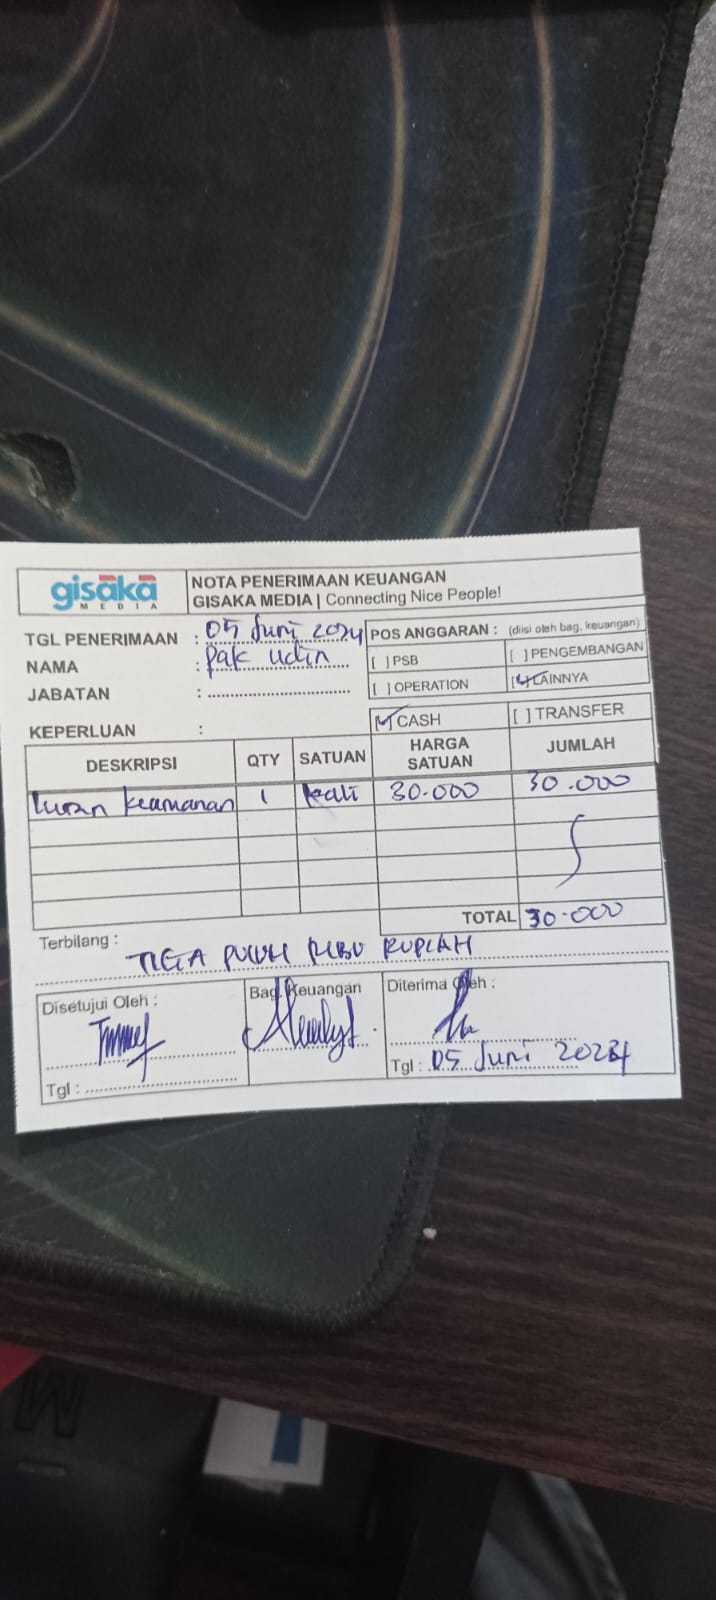 gisaka
MEDIA
NOTA PENERIMAAN KEUANGAN
GISAKA MEDIA | Connecting Nice People!
TGL PENERIMAAN : 05 Juni 2024
NAMA : Pak Udin
JABATAN :
POS ANGGARAN : (diisi oleh bag. keuangan)
[ ] PSB [ ] PENGEMBANGAN
[ ] OPERATION [✓] LAINNYA
KEPERLUAN :
[✓] CASH [ ] TRANSFER
DESKRIPSI QTY SATUAN HARGA SATUAN JUMLAH
Iuran keamanan 1 kali 30.000 30.000
TOTAL 30.000
Terbilang : TIGA PULUH RIBU RUPIAH
Disetujui Oleh : Bag. Keuangan Diterima Oleh :
Tgl : Tgl : 05 Juni 2024
M